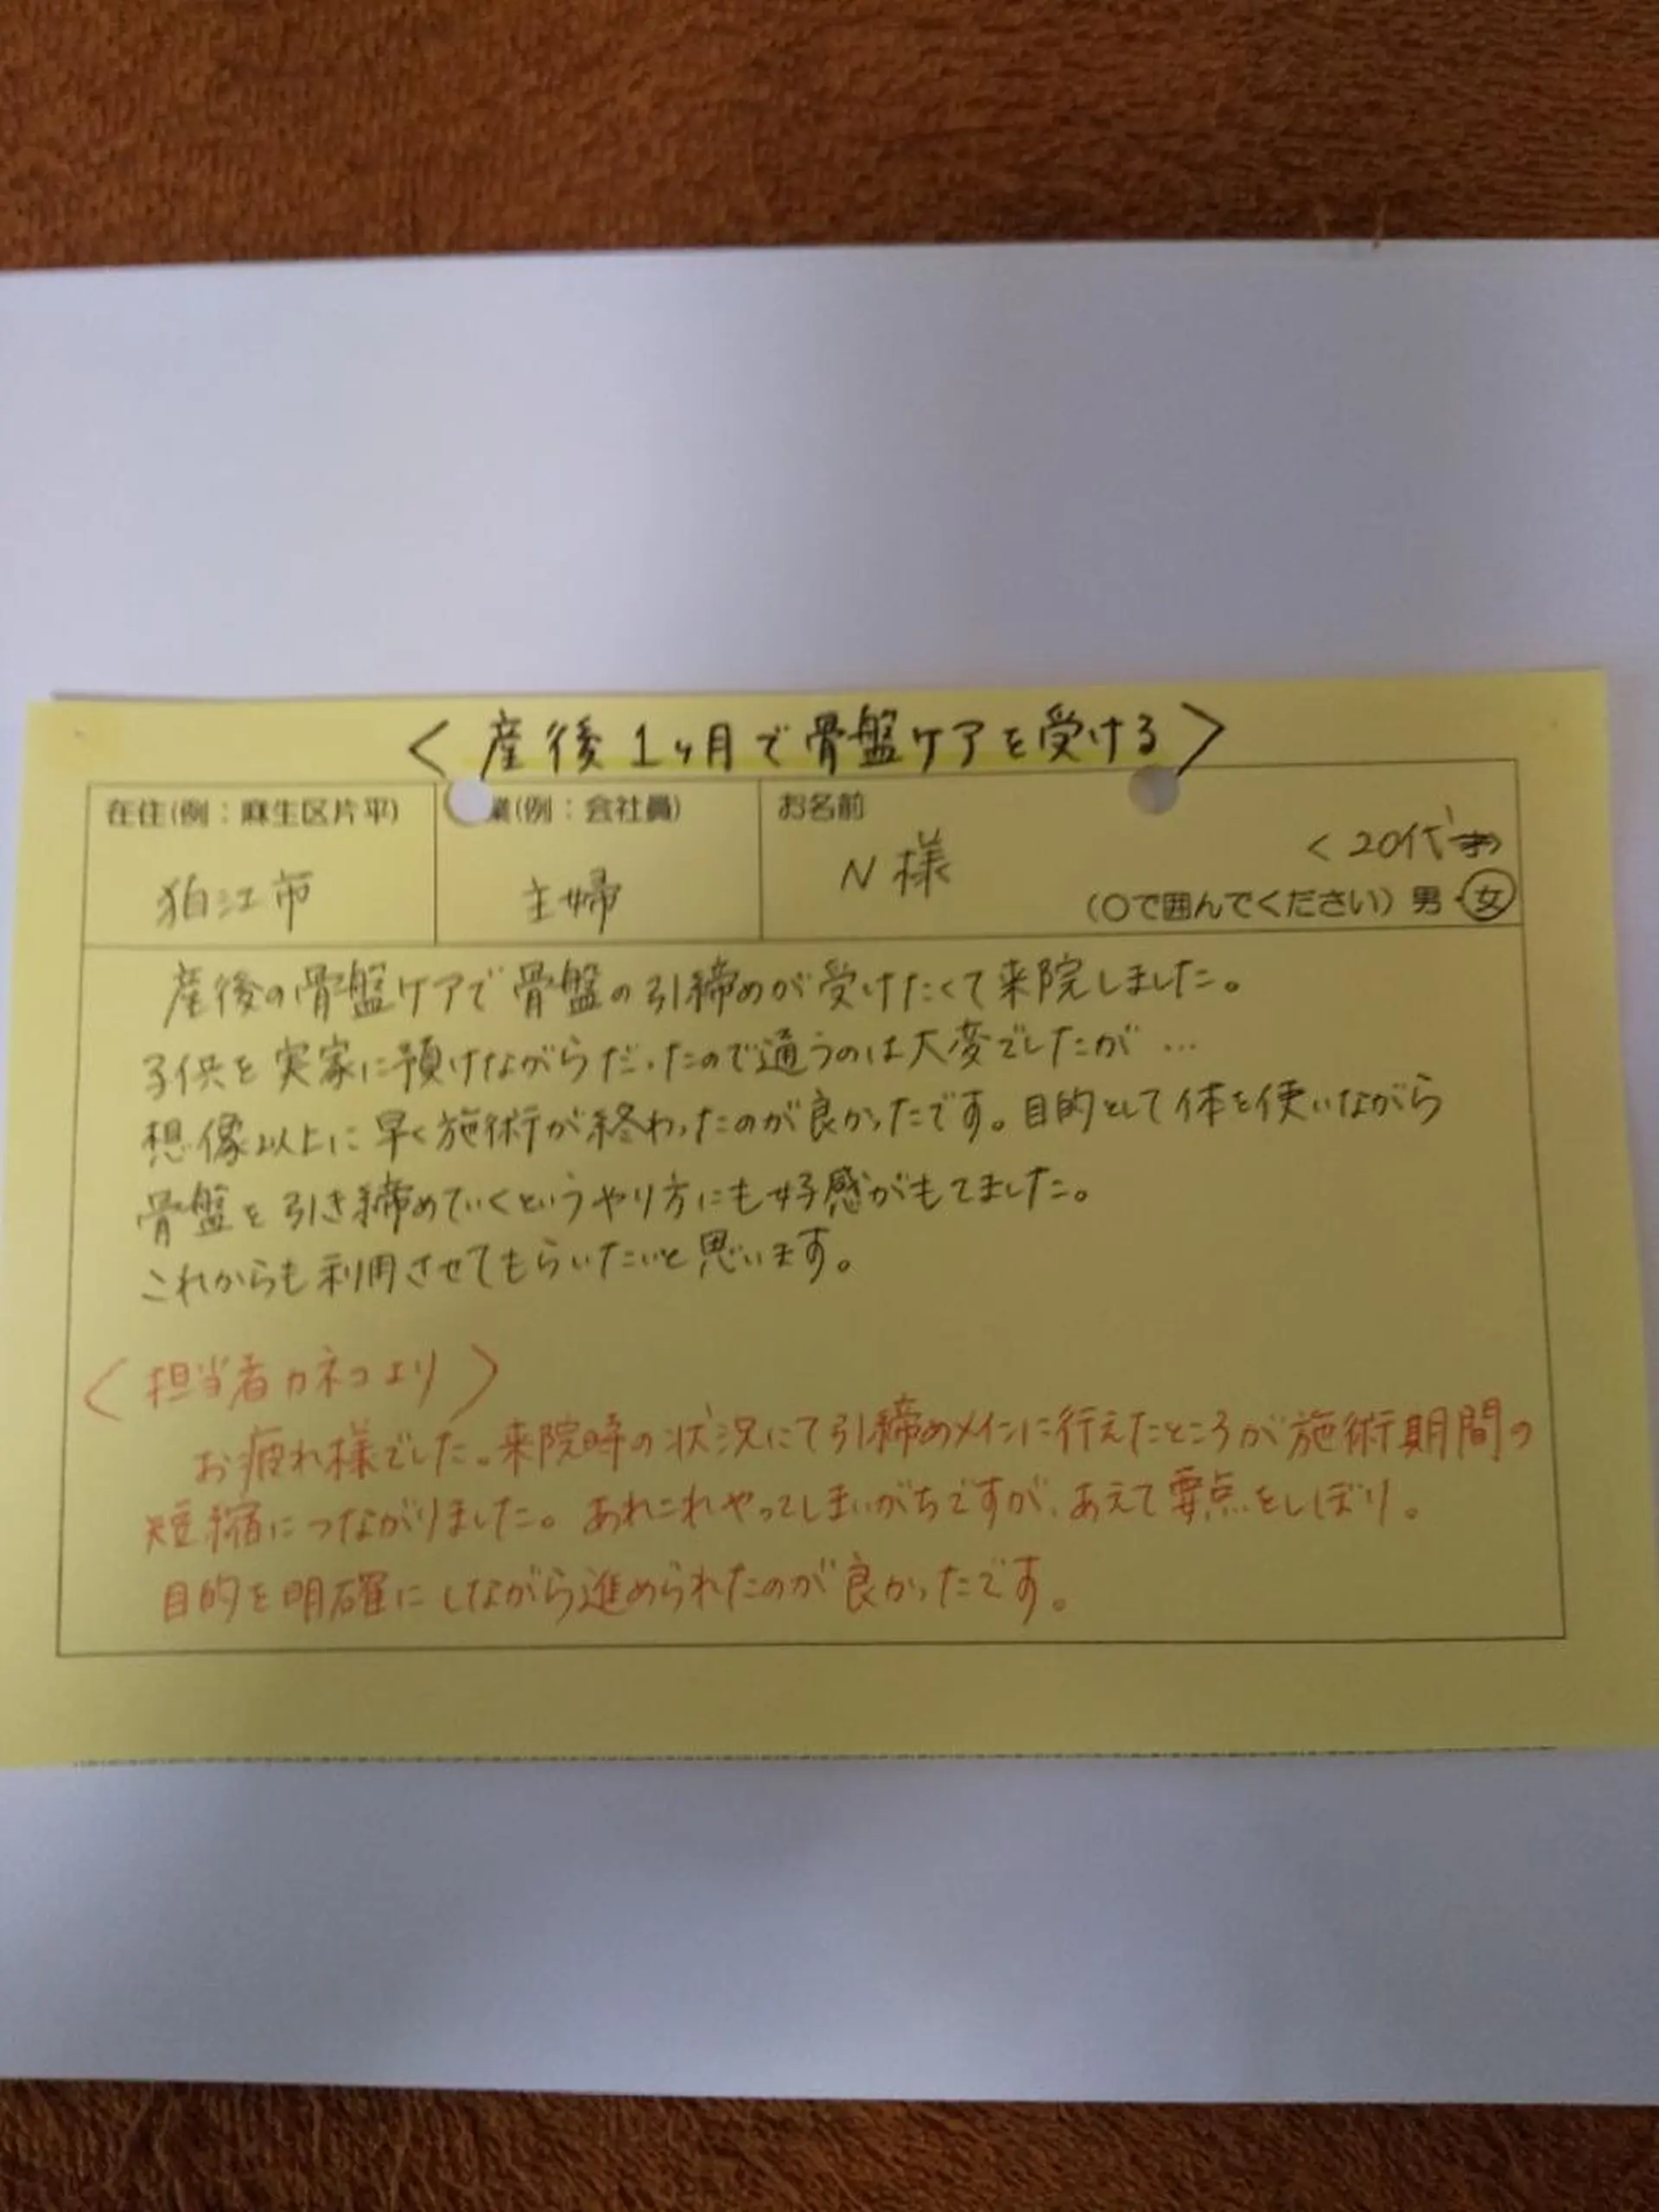 <産後1ヶ月で骨盤ケアを受ける>
在住(例：麻生区片平)
業(例：会社員)
お名前
狛江市
主婦
N様
<20代
(○で囲んでください) 男・女
産後の骨盤ケアで骨盤の引締めが受けたくて来院しました。
子供を実家に預けながらだったので通うのは大変でしたが…
想像以上に早く施術が終わったのが良かったです。目的として体を使いながら
骨盤を引き締めていくというやり方にも好感がもてました。
これからも利用させてもらいたいと思います。
<担当者カネコより>
お疲れ様でした。来院時の状況にて引締めメインに行えたところが施術期間の
短縮につながりました。あれこれやってしまいがちですが、あえて要点をしぼり。
目的を明確にしながら進められたのが良かったです。